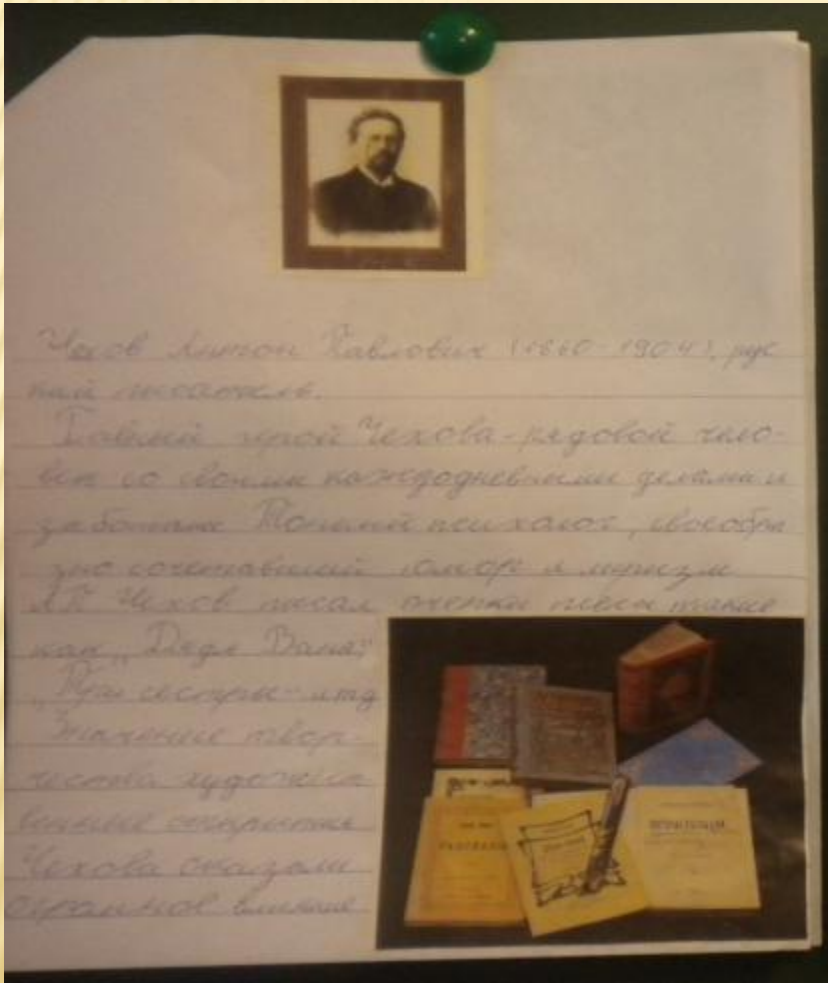 Чехов Антон Павлович (1860-1904), рус
кий писатель.
Главный герой Чехова-рядовой чело-
век со своими каждодневными делами и
заботами Тонкий психолог, своеобра
зно сочетавший юмор и лиризм
А.П Чехов писал пьесы такие
как „Дядя Ваня",
„Три сестры" итд
Значение твор-
чества художест
венные открытия
Чехова оказали
огромное влияние